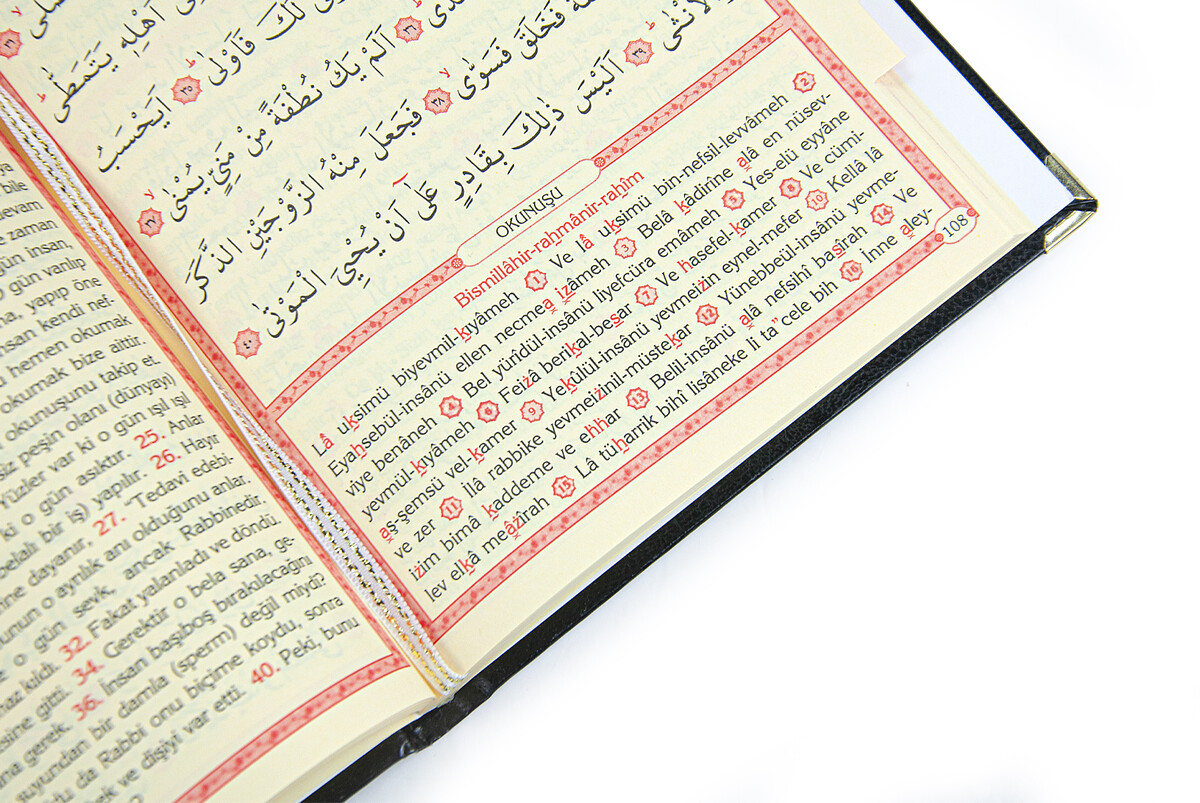 اَهْلِهِ يَتَمَطّٰى
لَكَ فَاَوْلٰى ٣٥ اَيَحْسَبُ
٣٦ اَلَمْ يَكُ نُطْفَةً مِنْ مَنِيٍّ يُمْنٰى ٣٧
فَخَلَقَ فَسَوّٰى ٣٨ فَجَعَلَ مِنْهُ الزَّوْجَيْنِ الذَّكَرَ
وَالْاُنْثٰى ٣٩ اَلَيْسَ ذٰلِكَ بِقَادِرٍ عَلٰٓى اَنْ يُحْيِيَ الْمَوْتٰى ٤٠
OKUNUŞU
Bismillâhir-rahmânir-rahîm
Lâ uksimü biyevmil-kıyâmeh 1 Ve lâ uksimü bin-nefsil-levvâmeh 2
Eyahsebül-insânü ellen necmea izâmeh 3 Belâ kâdirîne alâ en nüsev-
viye benâneh 4 Bel yürîdül-insânü liyefcüra emâmeh 5 Yes-elü eyyâne
yevmül-kıyâmeh 6 Feizâ berikal-besar 7 Ve hasefel-kamer 8 Ve cümi-
aş-şemsü vel-kamer 9 Yekûlül-insânü yevmeizin eynel-mefer 10 Kellâ lâ
ve zer 11 İlâ rabbike yevmeizinil-müstekar 12 Yünebbeül-insânü yevme-
izim bimâ kaddeme ve ehhar 13 Belil-insânü alâ nefsihî basîrah 14 Ve
lev elkâ meâzîrah 15 Lâ tüharrik bihî lisâneke li ta"cele bih 16 İnne aley-
108
bile
devam
zaman
gün insan,
gün varılıp
yapıp öne
insan kendi nef-
hemen okumak
okumak bize aittir.
okunuşunu takip et.
siz peşin olanı (dünyayı)
Yüzler var ki o gün ışıl ışıl
ki o gün asıktır. 25. Anlar
belalı bir iş) yapılır. 26. Hayır
dayanır, 27. "Tedavi edebi-
bunun o ayrılık anı olduğunu anlar.
o gün sevk, ancak Rabbinedir.
kıldı. 32. Fakat yalanladı ve döndü.
gitti. 34. Gerektir o bela sana, ge-
gerek. 36. İnsan başıboş bırakılacağını
suyundan bir damla (sperm) değil miydi?
da Rabbi onu biçime koydu, sonra
ve dişiyi var etti. 40. Peki, bunu